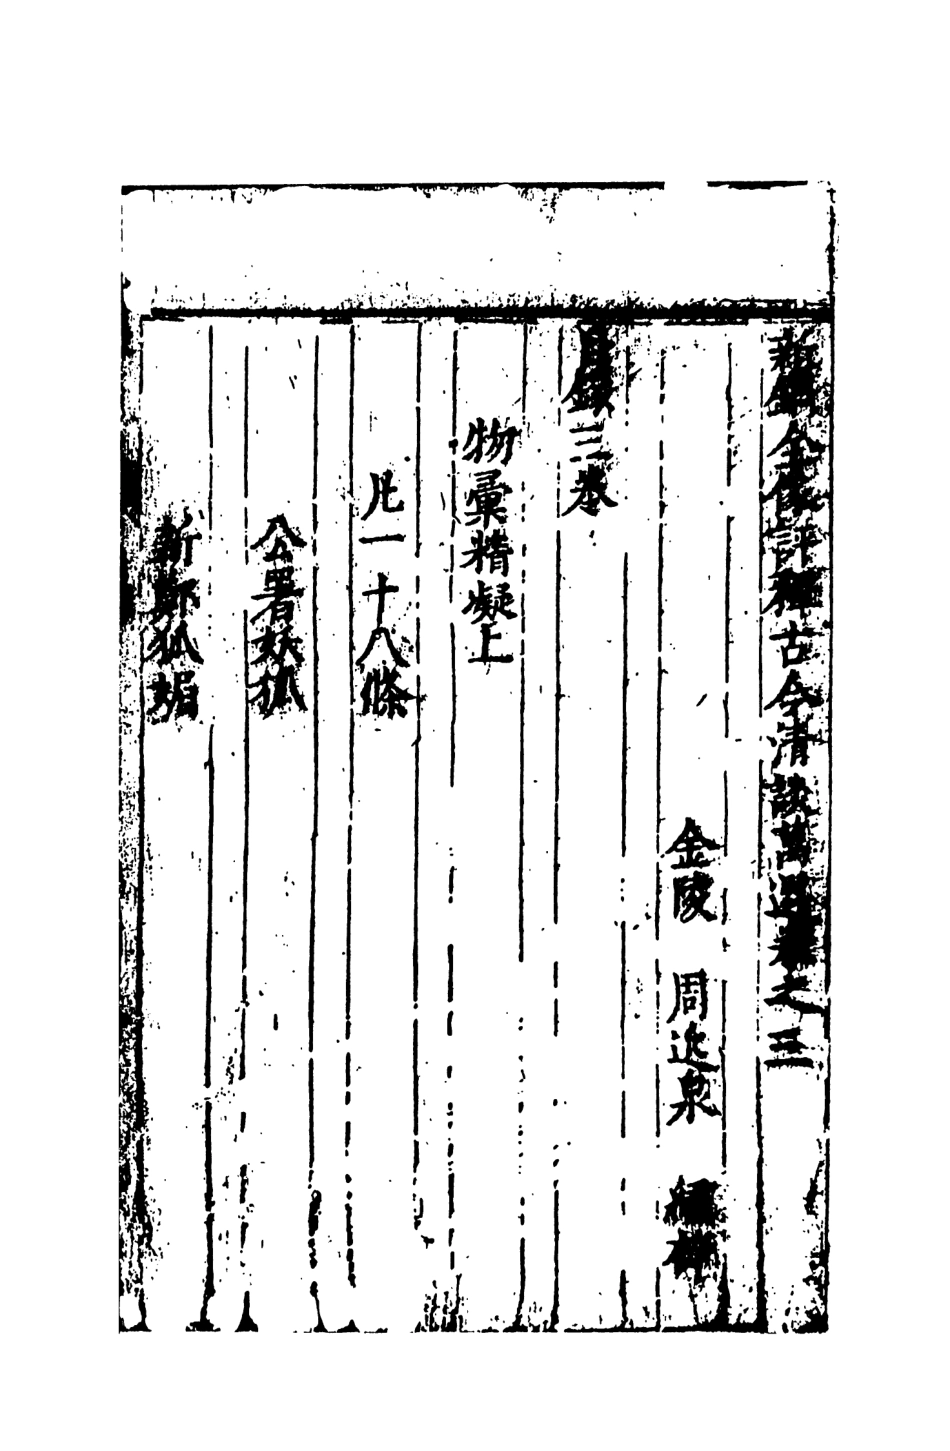 新鐫全像評釋古今清談萬選卷之三
金陵 周近泉 繡梓
目錄三卷
物彙精凝上
凡一十八條
公署妖狐
新鄭狐媚